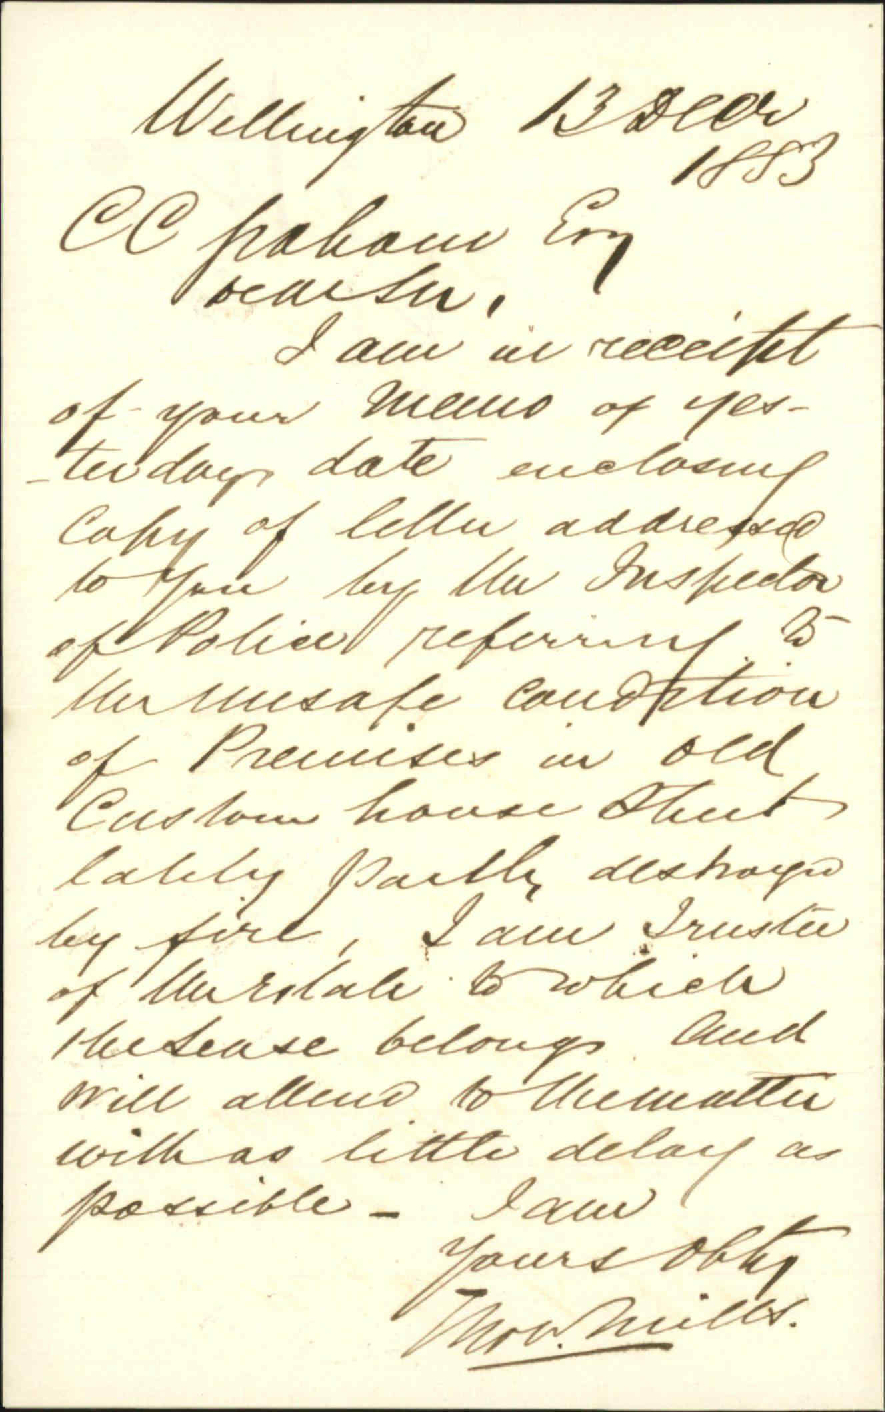 Wellington 13 Decr
1883
C C Graham Esq
Dear Sir,
I am in receipt
of your Memo of yes-
-terdays date enclosing
Copy of letter addressed
to you by the Inspector
of Police referring to
the unsafe condition
of Premises in old
Custom house Street
lately partly destroyed
by fire, I am Trustee
of the Estate to which
the Lease belongs and
will attend to the matter
with as little delay as
possible - I am
Yours Obtly
Thos. Mills.